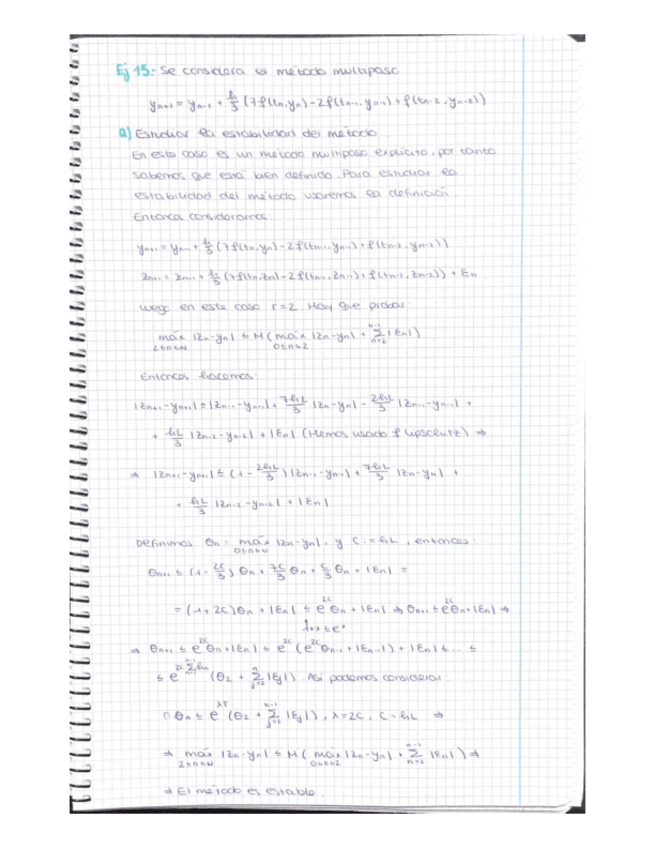 Ej 15.- Se considera el método multipaso
yn+1 = yn-1 + h/3 (7f(tn,yn) - 2f(tn-1,yn-1) + f(tn-2,yn-2))
a) Estudiar la estabilidad del método.
En este caso es un método multipaso explícito, por tanto
sabemos que está bien definido. Para estudiar la
estabilidad del método usaremos la definición.
Entonces consideramos:
yn+1 = yn-1 + h/3 (7f(tn,yn) - 2f(tn-1,yn-1) + f(tn-2,yn-2))
zn+1 = zn-1 + h/3 (7f(tn,zn) - 2f(tn-1,zn-1) + f(tn-2,zn-2)) + εn
Luego en este caso r=2. Hay que probar:
máx |zn-yn| ≤ M ( máx |zn-yn| + Σ |εn| )
2≤n≤N 0≤n≤2 n=2 n-1
Entonces hacemos:
|zn+1-yn+1| ≤ |zn-1-yn-1| + 7hL/3 |zn-yn| - 2hL/3 |zn-1-yn-1| +
+ hL/3 |zn-2-yn-2| + |εn| (Hemos usado f lipschitz) ⇒
⇒ |zn+1-yn+1| ≤ (1 - 2hL/3) |zn-1-yn-1| + 7hL/3 |zn-yn| +
+ hL/3 |zn-2-yn-2| + |εn|
Definimos θn = máx |zn-yn|, y C := hL, entonces:
0≤n≤N
θn+1 ≤ (1 - 2C/3) θn + 7C/3 θn + C/3 θn + |εn| =
= (1+2C)θn + |εn| ≤ e^2C θn + |εn| ⇒ θn+1 ≤ e^2C θn + |εn| ⇒
1+x ≤ e^x
⇒ θn+1 ≤ e^2C θn + |εn| ≤ e^2C (e^2C θn-1 + |εn-1|) + |εn| ≤ ... ≤
(θ2 + Σ |εj|). Así podemos considerar:
θn ≤ e^λT (θ2 + Σ |εj|), λ=2C, C=hL ⇒
⇒ máx |zn-yn| ≤ M ( máx |zn-yn| + Σ |εn| ) ⇒
2≤n≤N 0≤n≤2 n=2 n-1
⇒ El método es estable.